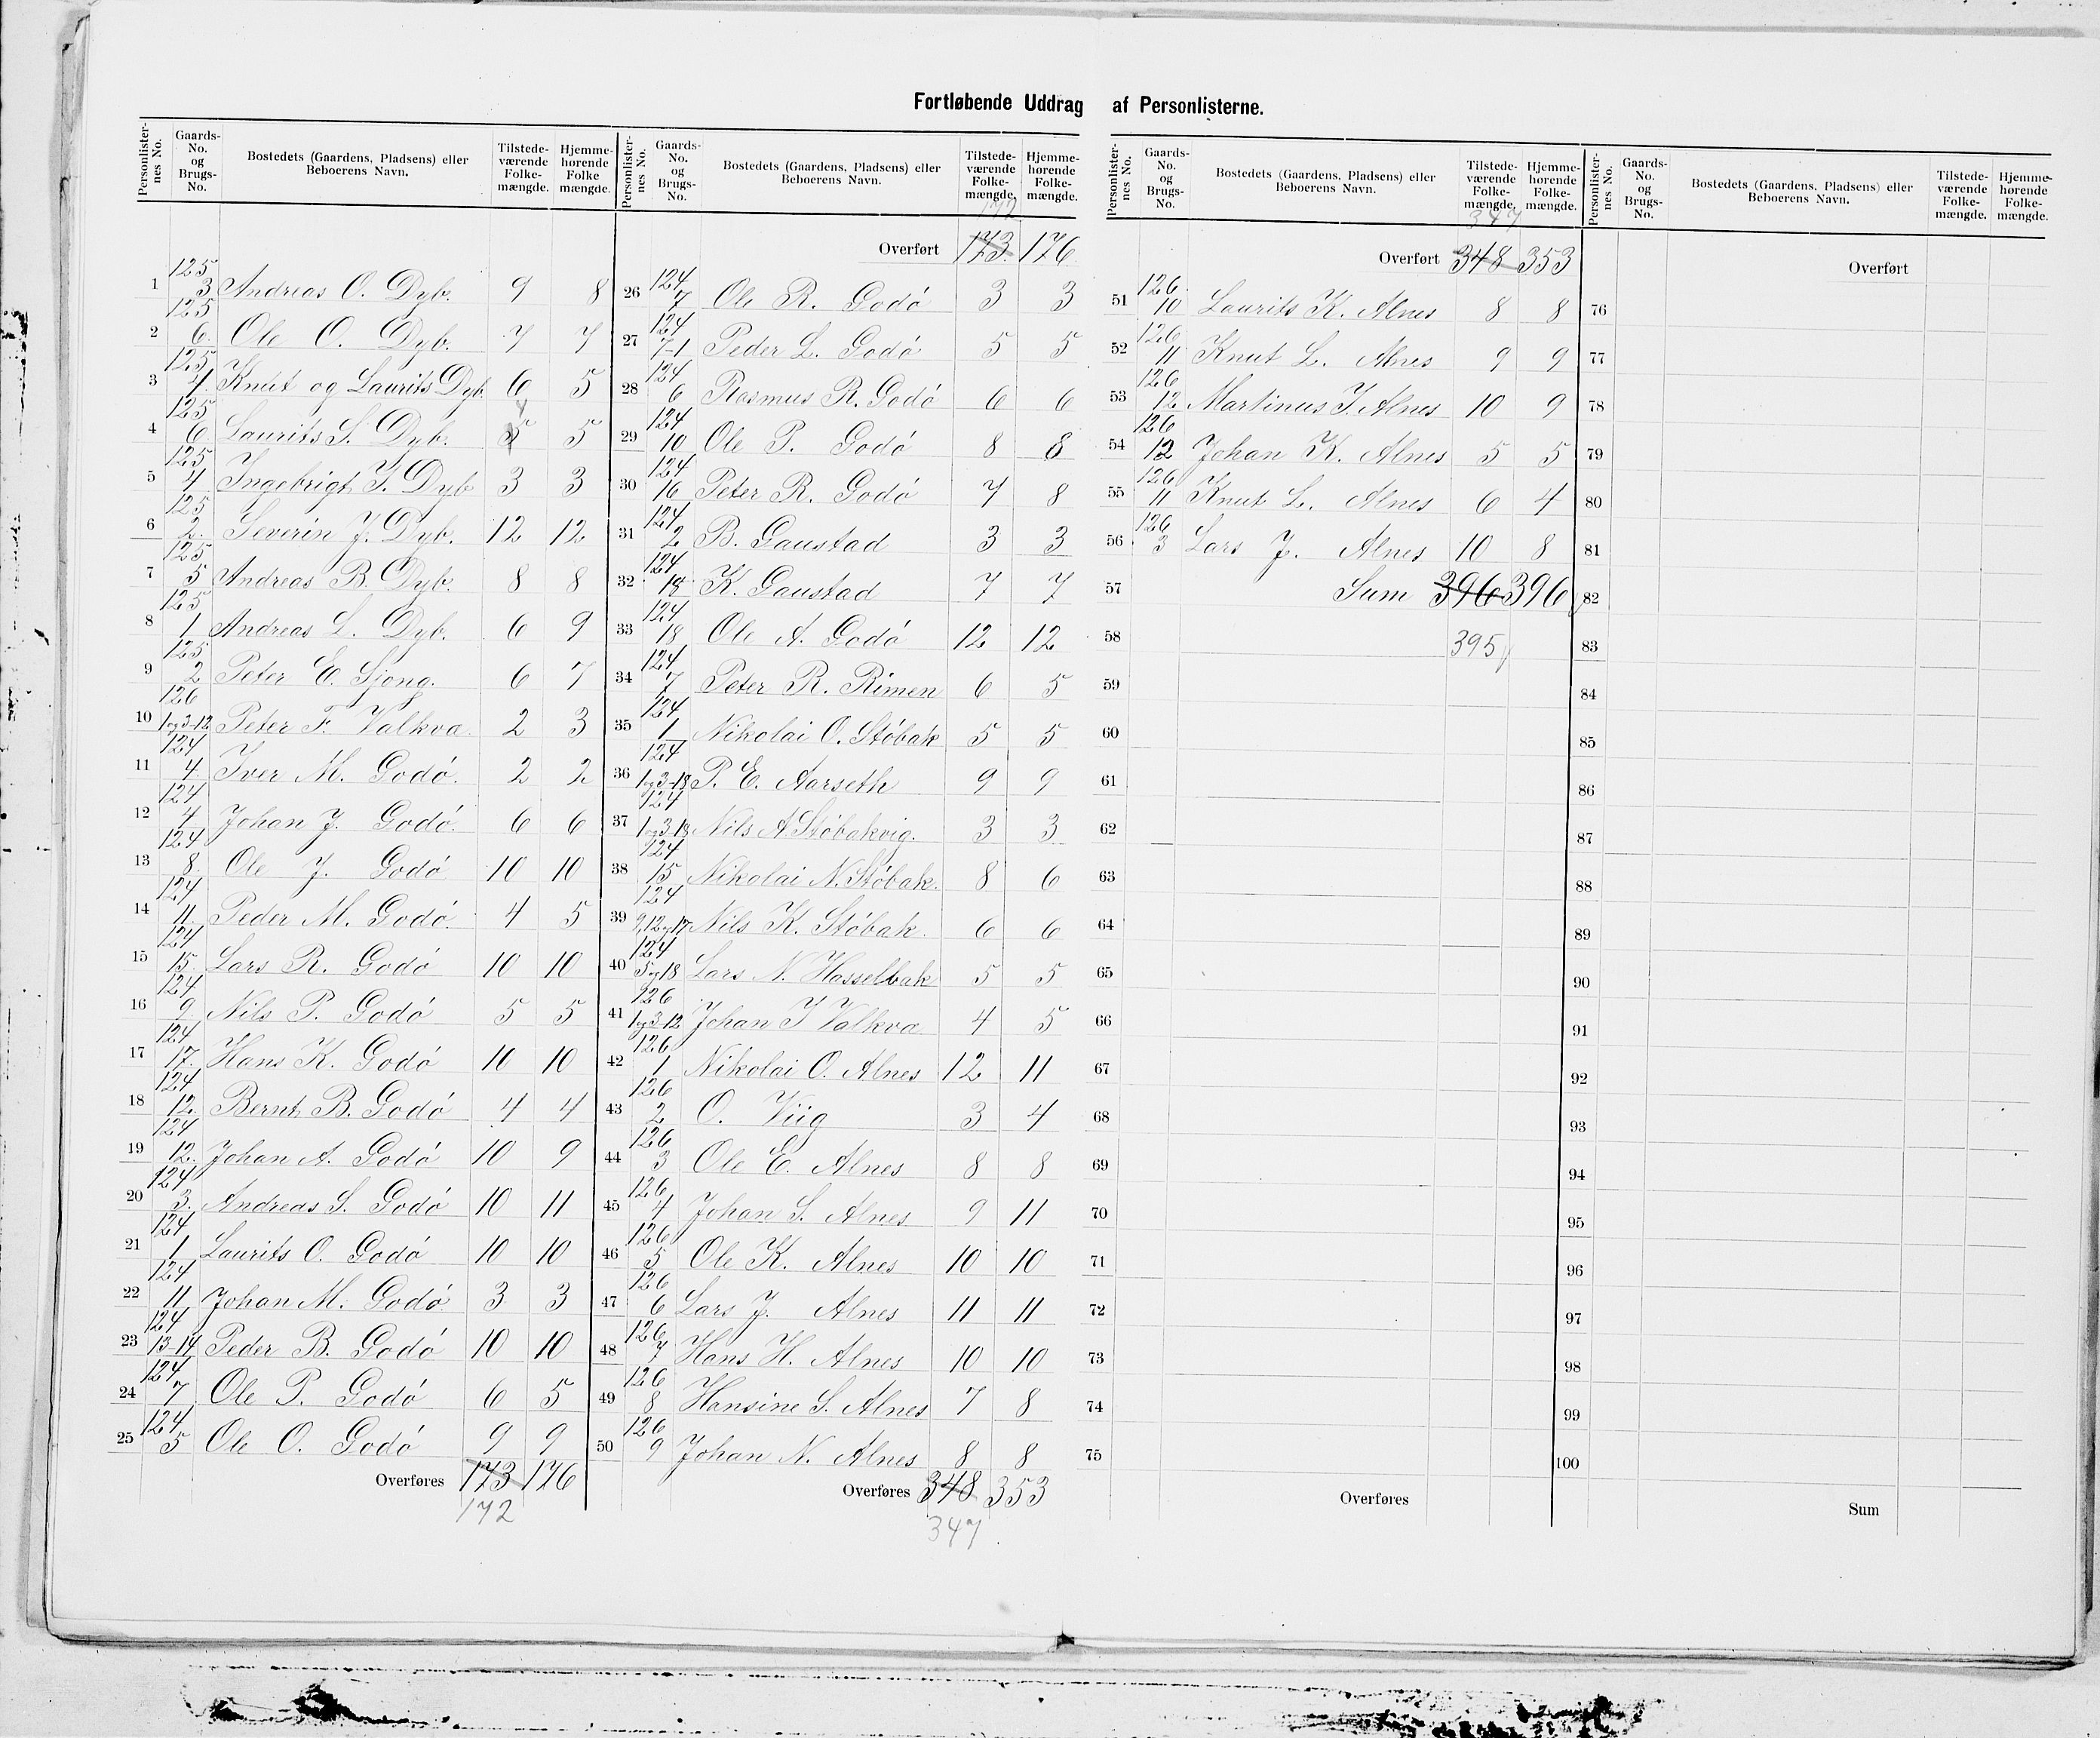 Fortløbende Uddrag af Personlisterne.
Personlister-nes No. Gaards-No. og Brugs-No. Bostedets (Gaardens, Pladsens) eller Beboerens Navn. Tilstede-værende Folke-mængde. Hjemme-hørende Folke mængde.
1 125 3 Andreas O. Dyb. 9 8
2 125 6. Ole O. Dyb. 7 7
3 125 1. Knut og Laurits Dyb. 6 5
4 125 6 Laurits S. Dyb. 5 4 5
5 125 4 Ingebrigt I. Dyb 3 3
6 125 2. Severin J. Dyb. 12 12
7 125 5 Andreas B. Dyb. 8 8
8 125 1 Andreas L. Dyb. 6 9
9 125 2 Peter E. Sjong. 6 7
10 126 1 og 3-12 Peter F. Valkva. 2 3
11 124 4. Iver M. Godø. 2 2
12 124 4 Johan J. Godø. 6 6
13 124 8. Ole J. Godø 10 10
14 124 11. Peder M. Godø. 4 5
15 124 15. Lars R. Godø 10 10
16 124 9. Nils P. Godø 5 5
17 124 17. Hans K. Godø 10 10
18 124 12. Bernt B. Godø 4 4
19 124 12. Johan A. Godø 10 9
20 124 3. Andreas S. Godø 10 11
21 124 1 Laurits O. Godø 10 10
22 124 11 Johan M. Godø 3 3
23 124 13-14 Peder B. Godø 10 10
24 124 7 Ole P. Godø 6 5
25 124 5 Ole O. Godø 9 9
Overføres 173 176
172
Personlister-nes No. Gaards-No. og Brugs-No. Bostedets (Gaardens, Pladsens) eller Beboerens Navn. Tilstede-værende Folke-mængde. Hjemme-hørende Folke-mængde.
172
Overført 173 176
26 124 7 Ole R. Godø 3 3
27 124 7-1 Peder L. Godø 5 5
28 124 6 Rasmus R. Godø 6 6
29 124 10 Ole P. Godø 8 8
30 124 16 Peter R. Godø 7 8
31 124 2 B. Gaustad 3 3
32 124 18 K. Gaustad 7 7
33 124 18 Ole A. Godø 12 12
34 124 7 Peter R. Rimen 6 5
35 124 1 Nikolai O. Støbak 5 5
36 124 1 og 3-18 P. E. Aarseth 9 9
37 124 1 og 3-18 Nils A Støbakvig. 3 3
38 124 15 Nikolai N. Støbak. 8 6
39 124 9,12 og 17 Nils K. Støbak. 6 6
40 124 5 og 18 Lars N. Hasselbak 5 5
41 126 1 og 3-12 Johan I Valkva 4 5
42 126 1 Nikolai O. Alnes 12 11
43 126 2 O. Viig 3 4
44 126 3 Ole E. Alnes 8 8
45 126 4 Johan S. Alnes 9 11
46 126 5 Ole K. Alnes 10 10
47 126 6 Lars J. Alnes 11 11
48 126 7 Hans H. Alnes 10 10
49 126 8 Hansine S. Alnes 7 8
50 126 9 Johan N. Alnes 8 8
Overføres 348 353
347
Personlister-nes No. Gaards-No. og Brugs-No. Bostedets (Gaardens, Pladsens) eller Beboerens Navn. Tilstede-værende Folke-mængde. Hjemme-hørende Folke-mængde.
347
Overført 348 353
51 126 10 Laurits K. Alnes 8 8
52 126 11 Knut L. Alnes 9 9
53 126 12 Martinus I. Alnes 10 9
54 126 12 Johan K. Alnes 5 5
55 126 11 Knut L. Alnes 6 4
56 126 3 Lars J. Alnes 10 8
57 Sum 396 396
58 395
59
60
61
62
63
64
65
66
67
68
69
70
71
72
73
74
75
Overføres
Personlister-nes No. Gaards-No. og Brugs-No. Bostedets (Gaardens, Pladsens) eller Beboerens Navn. Tilstede-værende Folke-mængde. Hjemme-hørende Folke-mængde.
Overført
76
77
78
79
80
81
82
83
84
85
86
87
88
89
90
91
92
93
94
95
96
97
98
99
100
Sum